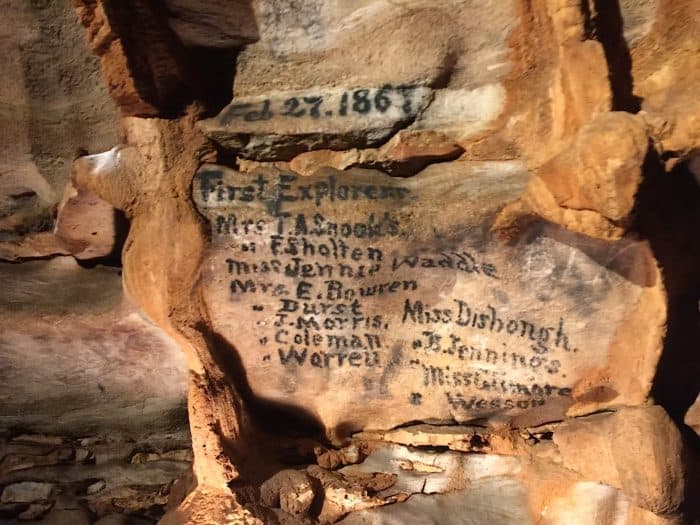 Feb 27. 1867
First Explorers.
Mrs T. A. Snook's.
" F. Sholten
Miss Jennie Waddle
Mrs E. Bowren
" Durst
" J. Morris.
" Coleman
" Warren
Miss Dishongh.
" B. Jenning's.
Miss Gilmore
" Wesson